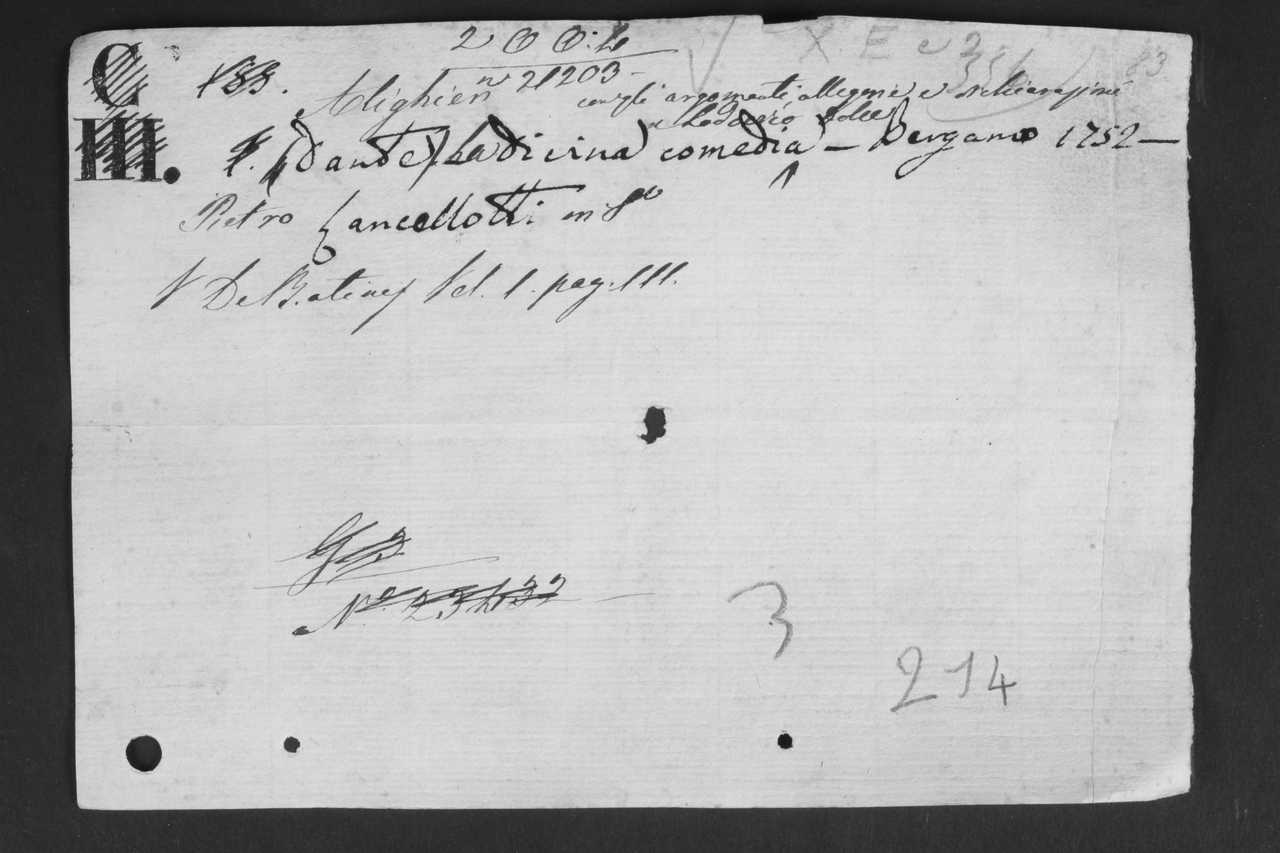 C
III.
133.
2 0 0:4
nº 21203-
X E c 2
Alighieri
con gli argomenti allegorie e dichiarazioni
Lodovico Dolce
(Dante) La divina comedia — Bergamo 1752 —
Pietro Lancellotti in 8º
V De Batines Vol. 1. pag. 111.
Nº 23432
3
214